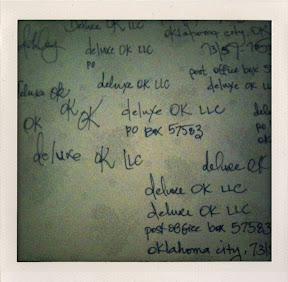 deluxe OK LLC
oklahoma city, OK
deluxe OK LLC
PO
post office box 5
deluxe OK
deluxe OK LLC
deluxe OK LLC
OK OK
OK
deluxe OK LLC
PO BOX 57583
po
OK
deluxe OK LLC
deluxe OK
deluxe OK LLC
deluxe OK LLC
post office box 57583
oklahoma city, 731